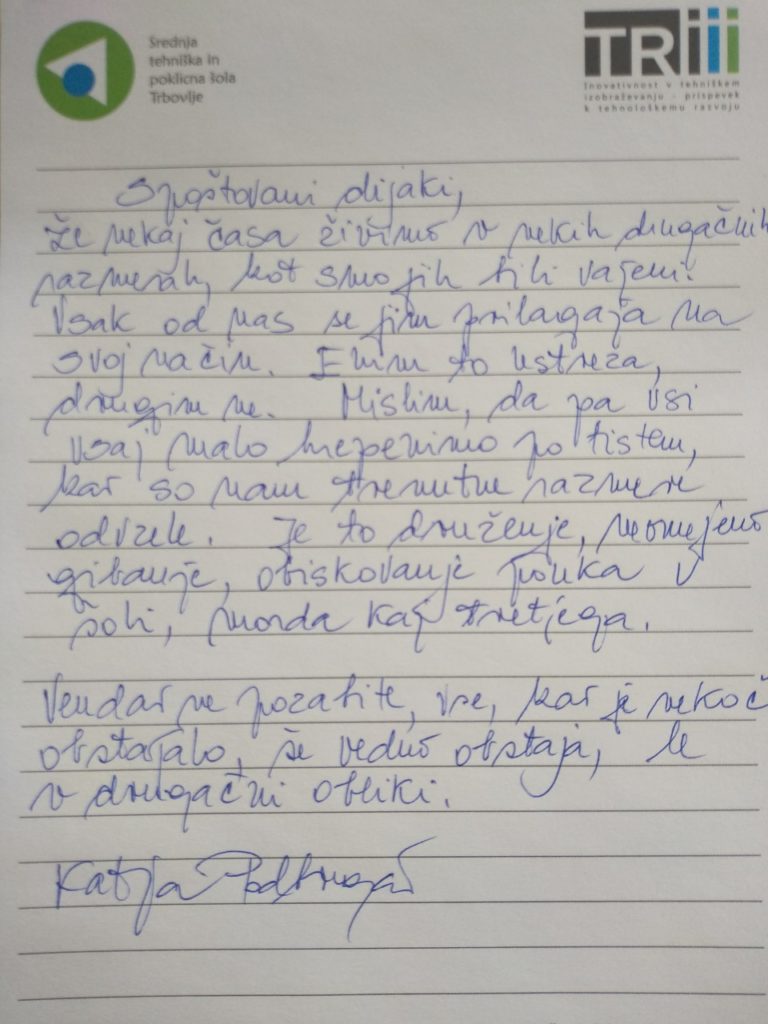 Srednja
tehniška in
poklicna šola
Trbovlje
TRiii
Inovativnost v tehniškem
izobraževanju - prispevek
k tehnološkemu razvoju
Spoštovani dijaki,
že nekaj časa živimo v nekih drugačnih
razmerah, kot smo jih bili vajeni.
Vsak od nas se jim prilagaja na
svoj način. Enim to ustreza,
drugim ne. Mislim, da pa vsi
vsaj malo hrepenimo po tistem,
kar so nam trenutne razmere
odvzele. Je to druženje, neomejeno
gibanje, obiskovanje pouka v
šoli, morda kaj tretjega.
Vendar ne pozabite, vse, kar je nekoč
obstajalo, še vedno obstaja, le
v drugačni obliki.
Katja